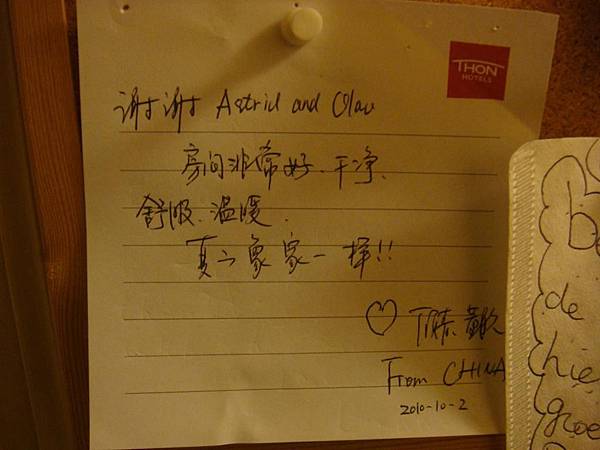 THON
HOTELS
谢谢 Astrid and Olav
房间非常好、干净、
舒服、温暖.
真的象家一样!!
From CHINA
2010-10-2
de
hie
groe